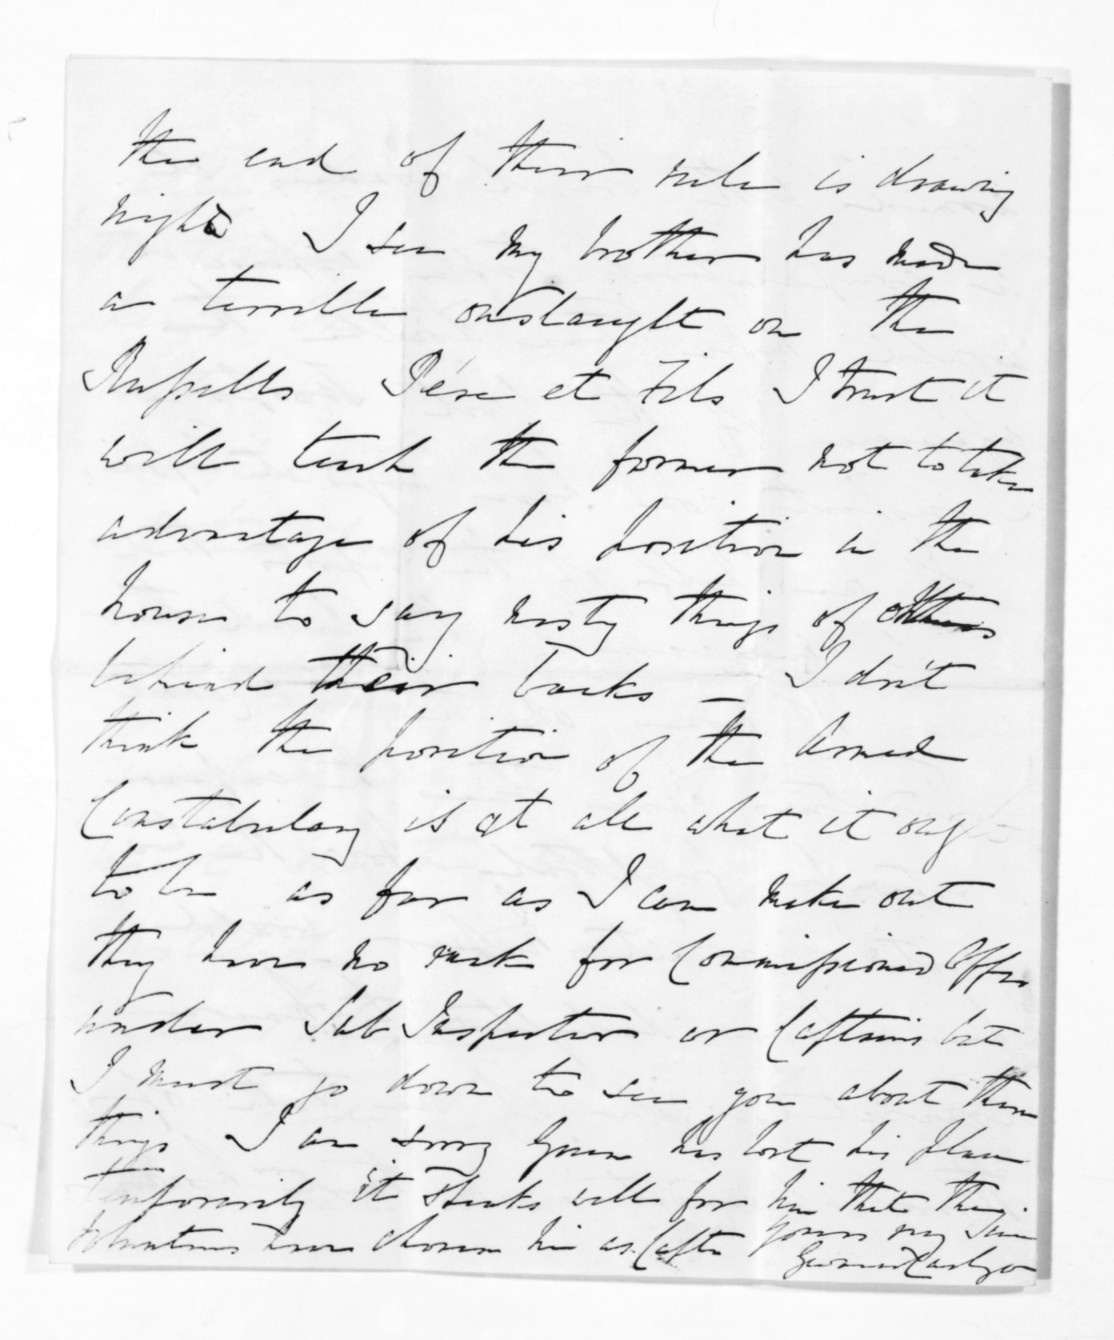 the end of their rule is drawing
nigh I see my brother has made
a terrible onslaught on the
Russells Pére et Fils I trust it
will teach the former not to take
advantage of his position in the
house to say nasty things of others
behind their backs – I don't
think the position of the Armed
Constabulary is at all what it ought
to be as far as I can make out
they have no rank for Commissioned Offrs
under Sub Inspector or Captains but
I must go down to see you about these
things I am sorry has lost his place
temporarily it speaks well for him that the
Volunteers have chosen him as Captn Yours very